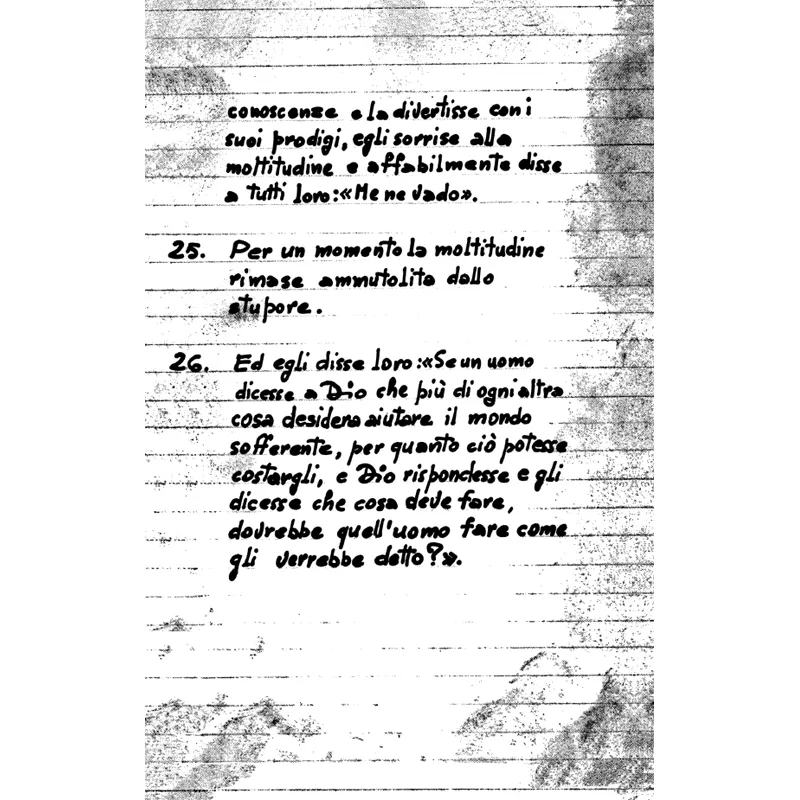 conoscenze e la divertisse con i
suoi prodigi, egli sorrise alla
moltitudine e affabilmente disse
a tutti loro:«Me ne vado».
25. Per un momento la moltitudine
rimase ammutolita dallo
stupore.
26. Ed egli disse loro:«Se un uomo
dicesse a Dio che più di ogni altra
cosa desidera aiutare il mondo
sofferente, per quanto ciò potesse
costargli, e Dio rispondesse e gli
dicesse che cosa deve fare,
dovrebbe quell'uomo fare come
gli verrebbe detto?».